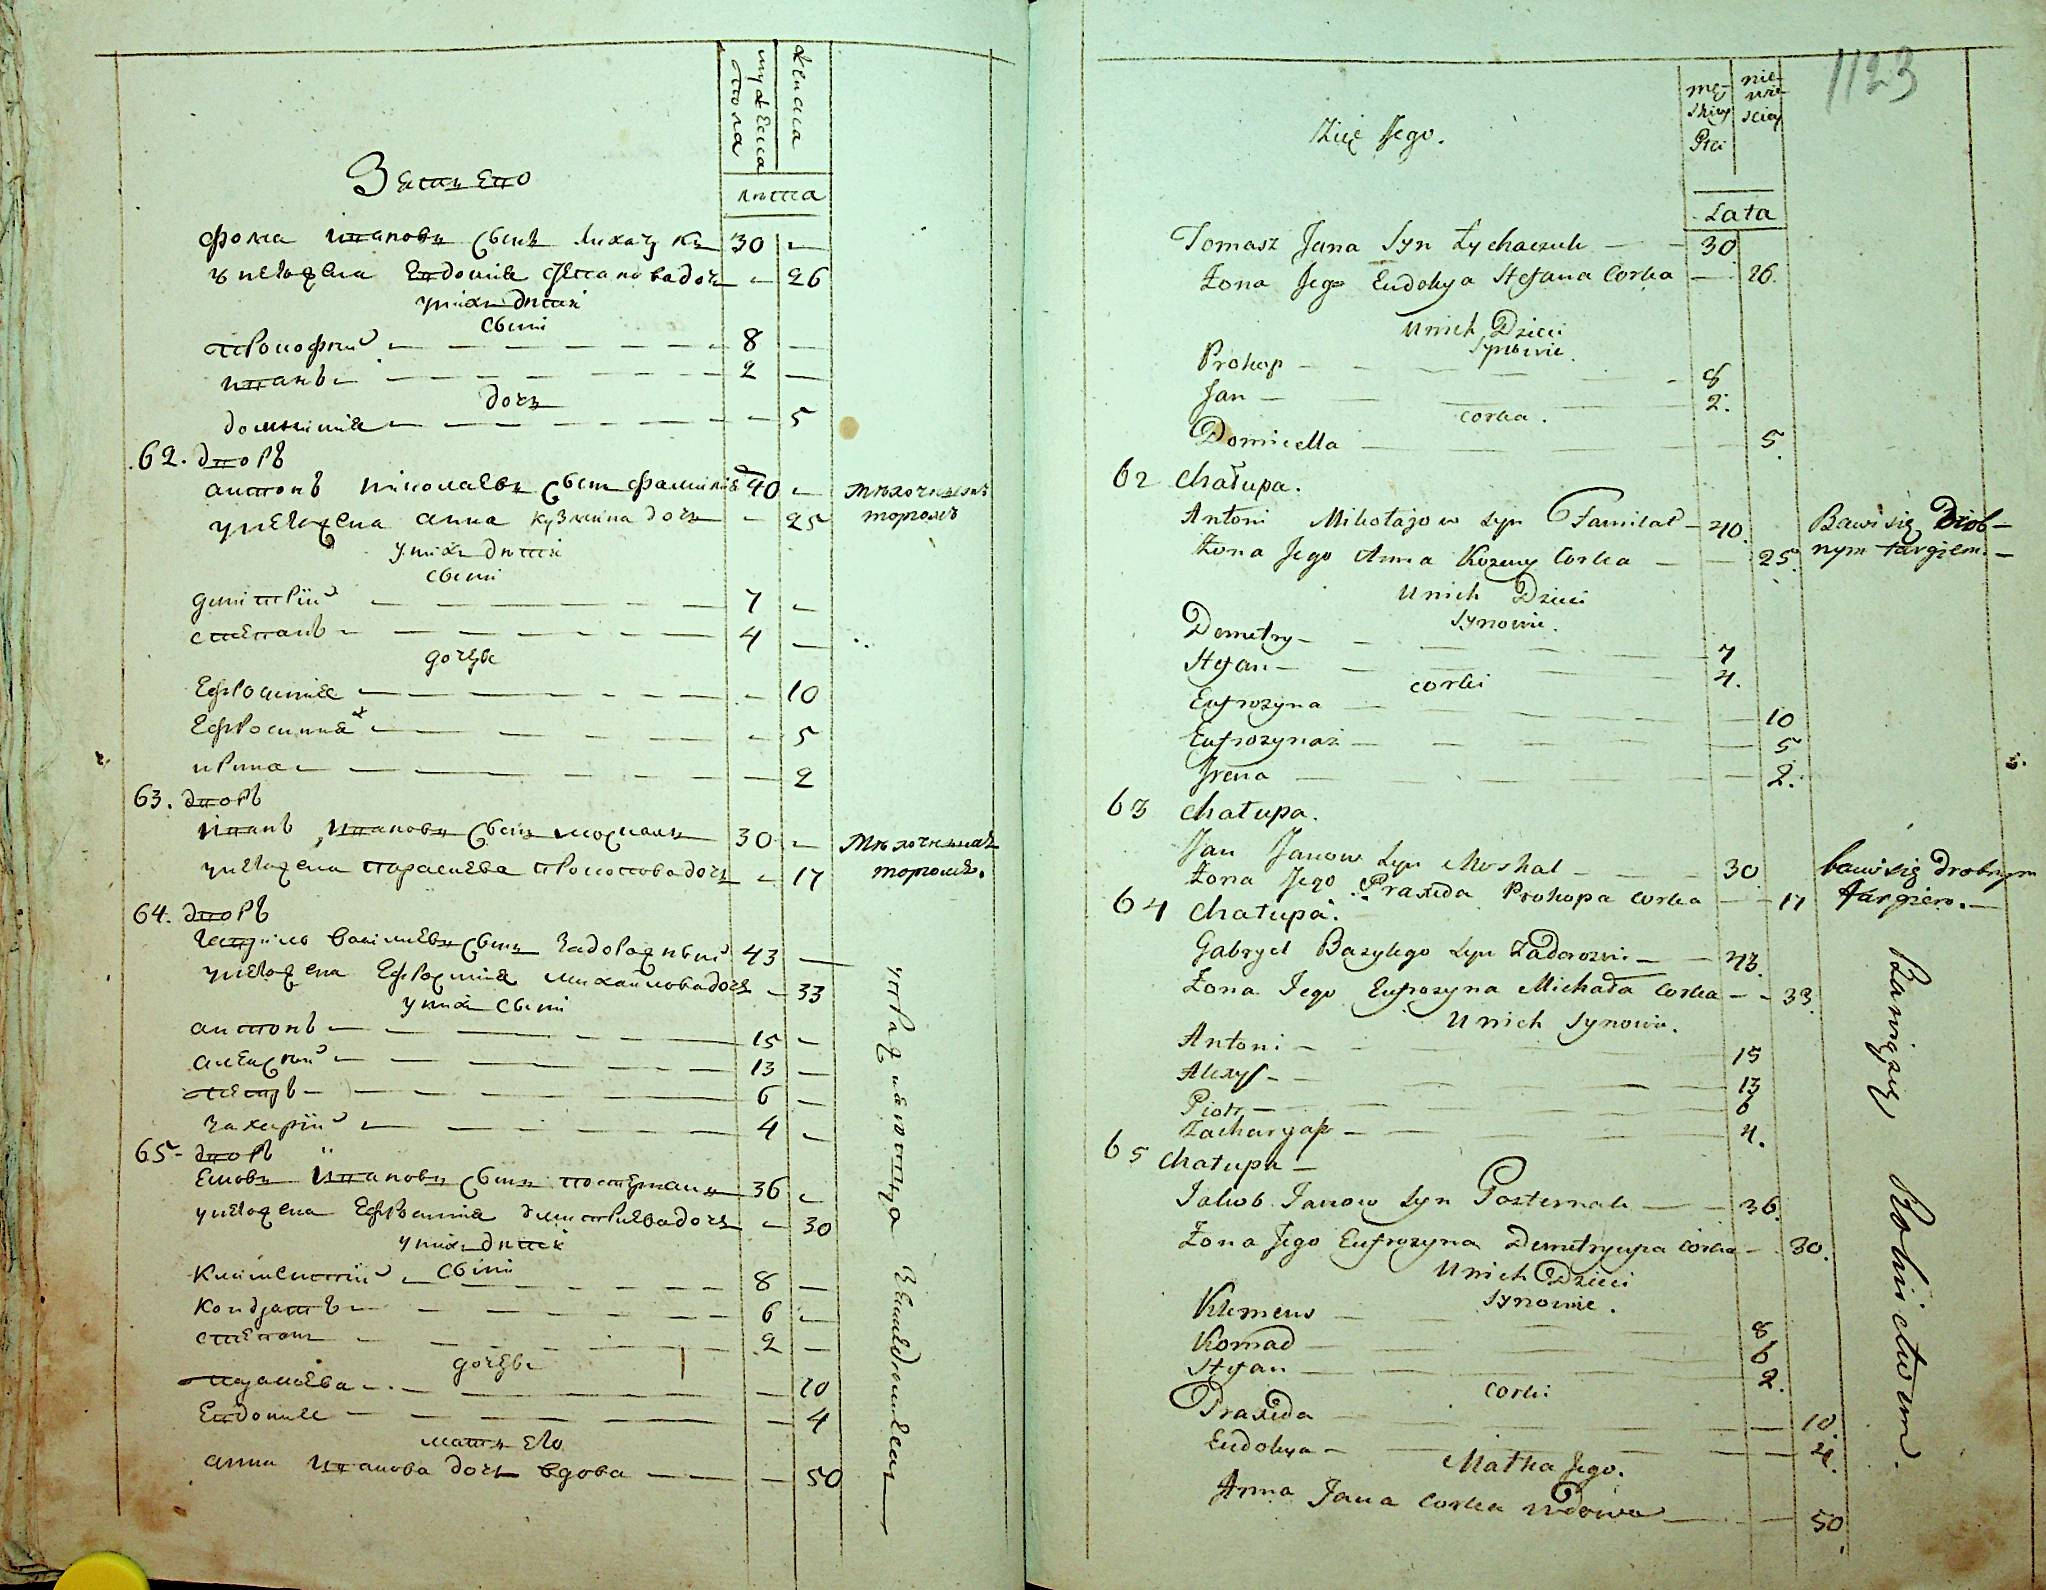 мужеска пола
женска
лѣта
Зять Его
Фома Ивановъ Сынъ Лихачукъ 30 —
у него жена Евдокия Стефанова дочь — 26
у нихъ дѣти
Сыни
Прокофий 8 —
Иванъ 2 —
дочь
Домникия — 5
62. дворъ
Антонъ Николаевъ Сынъ 40 — Мѣлочнымъ
у него жена Анна Кузмина дочь — 25 торгомъ
у нихъ дѣти
Сыни
Димитрій 7 —
Стефанъ 4 —
дочери
Ефросиния — 10
Ефросинияж — 5
Ирина — 2
63. дворъ
Иванъ Ивановъ Сынъ Москаль 30 — Мѣлочнымъ
у него жена Параскева Прокопова дочь — 17 торгомъ.
64. дворъ
Гавриилъ Василиевъ Сынъ Задорожный 43 —
у него жена Ефросиния Михайлова дочь — 33
у нихъ Сыни
Антонъ 15 —
Алексѣй 13 —
Петръ 6 —
Захарій 4 —
65. дворъ
Яковъ Ивановъ Сынъ Постернакъ 36 —
у него жена Ефросиния Димитриева дочь — 30
у нихъ дѣти
Сыни
Климентій 8 —
Кондратъ 6 —
Стефанъ 2 —
дочери
Параскева — 10
Евдокия — 4
мать Его
Анна Иванова дочь вдова — 50
упражняются Земледелиемъ
1123
męskiey Płci
niewieściey
Lata
Zięć Jego.
Tomasz Jana Syn Łychaczuk — 30
Żona Jego Eudokya Stefana Corka — 26.
U nich Dzieci
Synowie.
Prokop — 8
Jan — 2.
Corka.
Domicella — 5.
62 Chałupa.
Antoni Mikołajow Syn — 40. Bawi się Drob-
Żona Jego Anna Kozmy Corka — 25. nym targiem. —
U nich Dzieci
Synowie.
Demetry — 7
Stefan — 4.
Corki
Eufrozyna — 10
Eufrozynaż — 5
Irena — 2.
63 Chałupa.
Jan Janow Syn Moskal — 30 bawi się drobnym
Żona Jego Praxeda Prokopa Corka — 17 targiem. —
64 Chałupa.
Gabryel Bazylego Syn Zadorozni — 43.
Żona Jego Eufrozyna Michała Corka — 33.
U nich Synowie.
Antoni — 15
Alexy — 13
Piotr — 6
Zacharyasz — 4.
65 Chałupa —
Jakob Janow Syn Pasternak — 36.
Żona Jego Eufrozyna Demetryupa Corka — 30.
U nich Dzieci
Synowie.
Klemens — 8
Konrad — 6
Stefan — 2.
Corki
Praxeda — 10.
Eudokya — 4.
Matka Jego.
Anna Jana Corka wdowa — 50.
Bawią się Rolnictwem.